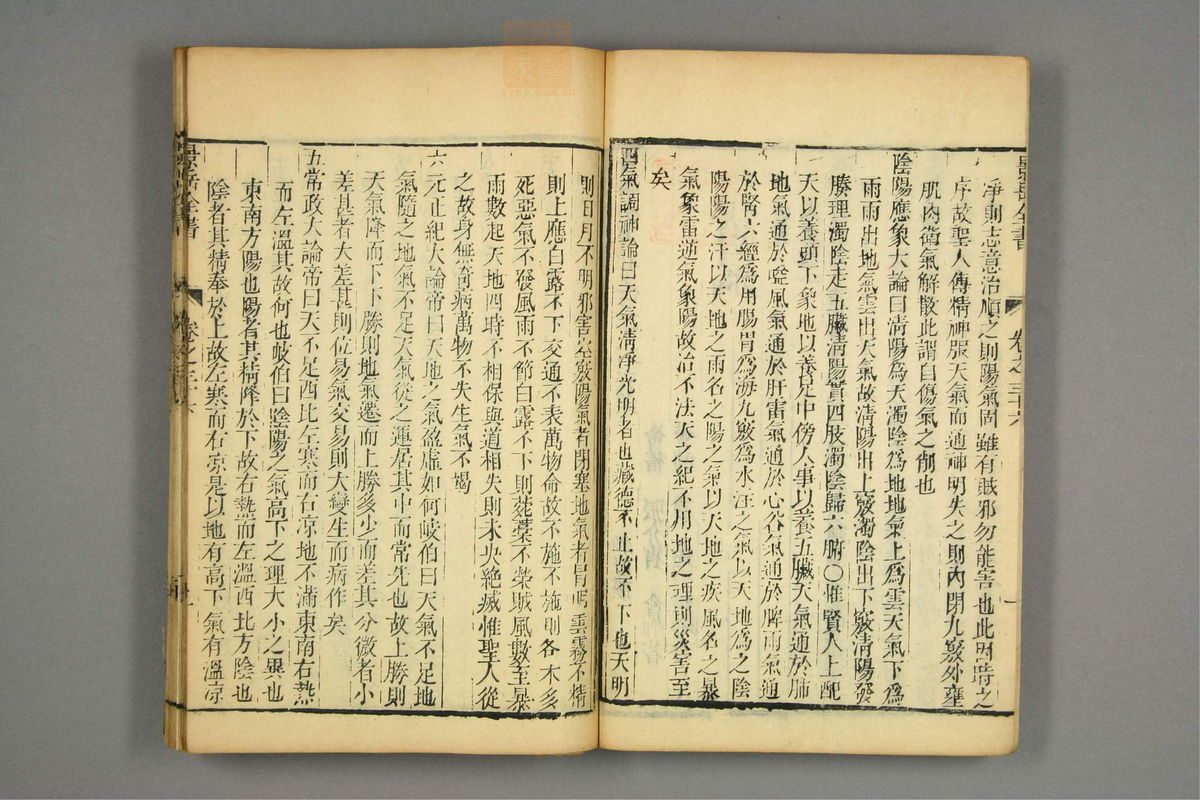 景岳全書
卷之三十六
淨則志意治順之則陽氣固雖有賊邪勿能害也此因時之
序故聖人傳精神服天氣而通神明失之則內閉九竅外壅
肌肉衛氣解散此謂自傷氣之削也
陰陽應象大論曰淸陽爲天濁陰爲地地氣上爲雲天氣下爲
雨雨出地氣雲出天氣故淸陽出上竅濁陰出下竅淸陽發
腠理濁陰走五臟淸陽實四肢濁陰歸六腑○惟賢人上配
天以養頭下象地以養足中傍人事以養五臟天氣通於肺
地氣通於嗌風氣通於肝雷氣通於心谷氣通於脾雨氣通
於腎六經爲川腸胃爲海九竅爲水注之氣以天地爲之陰
陽陽之汗以天地之雨名之陽之氣以天地之疾風名之暴
氣象雷逆氣象陽故治不法天之紀不用地之理則災害至
矣
四氣調神論曰天氣淸凈光明者也藏德不止故不下也天明
則日月不明邪害空竅陽氣者閉塞地氣者冒明雲霧不精
則上應白露不下交通不表萬物命故不施不施則名木多
死惡氣不發風雨不節白露不下則菀藁不榮賊風數至暴
雨數起天地四時不相保與道相失則未央絕滅惟聖人從
之故身無奇病萬物不失生氣不竭
六元正紀大論帝曰天地之氣盈虛如何岐伯曰天氣不足地
氣隨之地氣不足天氣從之運居其中而常先也故上勝則
天氣降而下下勝則地氣遷而上勝多少而差其分微者小
差甚者大差甚則位易氣交易則大變生而病作矣
五常政大論帝曰天不足西北左寒而右凉地不滿東南右熱
而左溫其故何也岐伯曰陰陽之氣高下之理大小之異也
東南方陽也陽者其精降於下故右熱而左溫西北方陰也
陰者其精奉於上故左寒而右凉是以地有高下氣有溫凉
景岳全書
卷之三十六